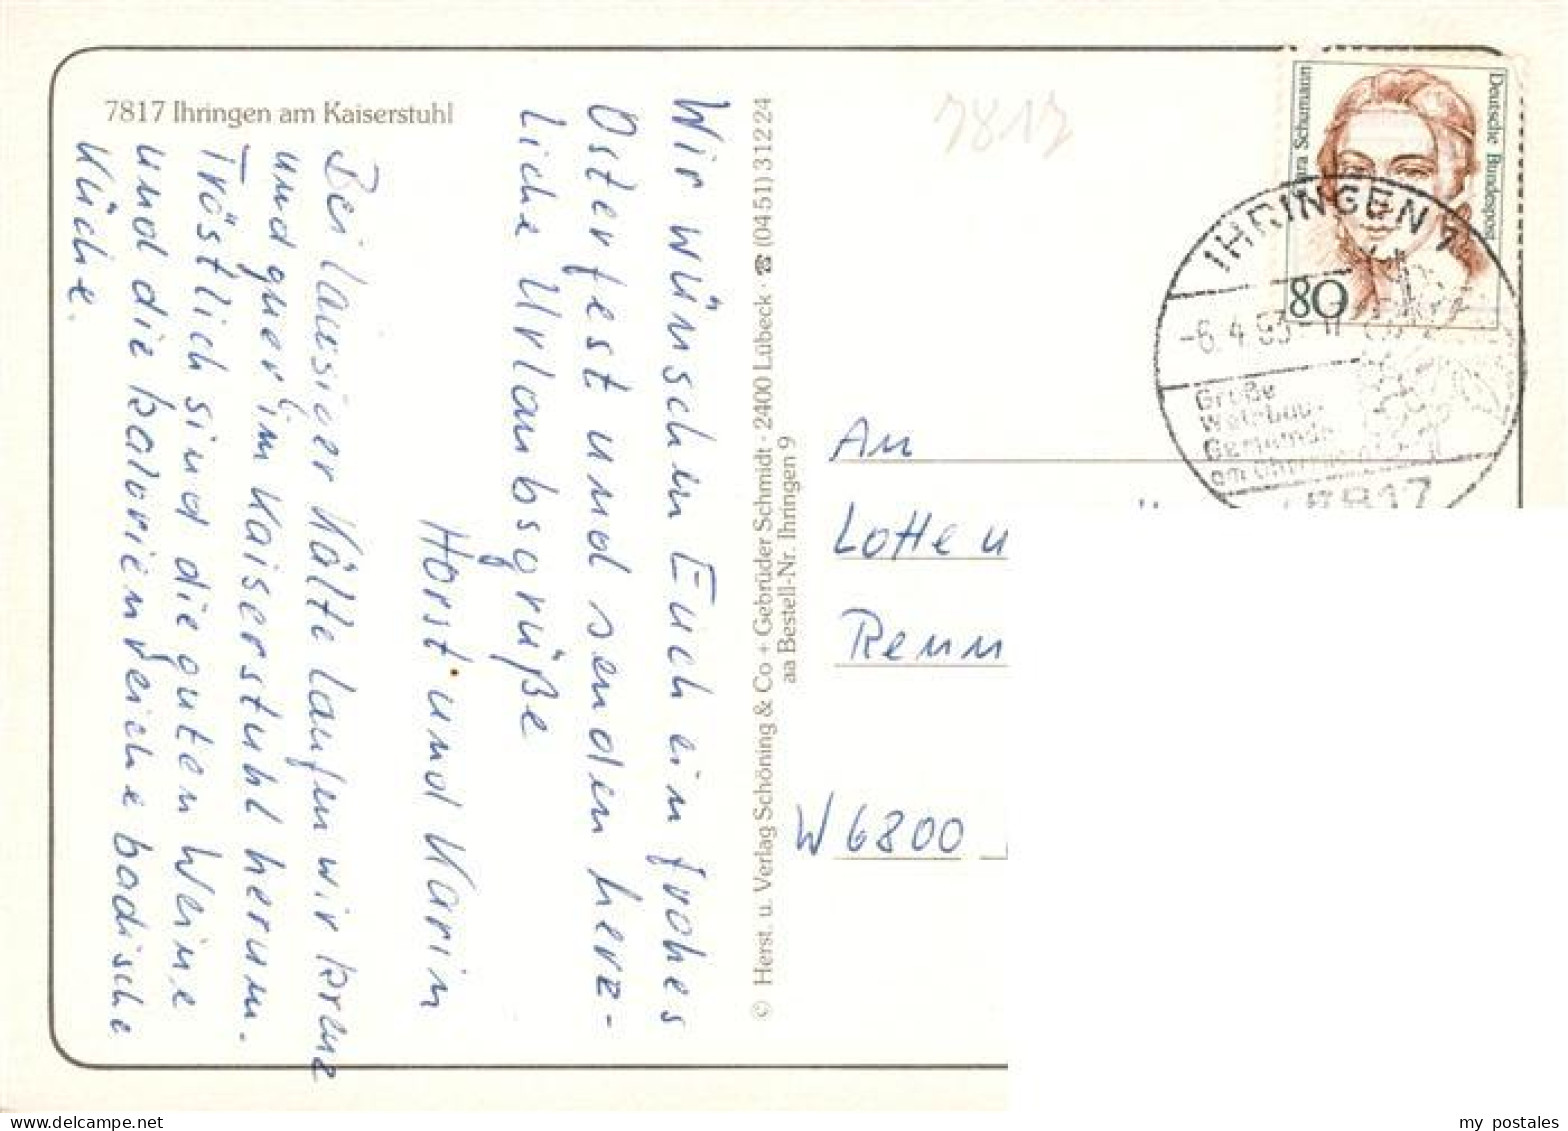 7817 Ihringen am Kaiserstuhl
Wir wünschen Euch ein frohes
Osterfest und senden herz-
liche Urlaubsgrüße
Horst und Karin
Bei lausiger Kälte laufen wir kreuz
und quer im Kaiserstuhl herum.
Tröstlich sind die guten Weine
und die kalorienreiche badische
Küche.
© Herst. u. Verlag Schöning & Co + Gebrüder Schmidt · 2400 Lübeck · ☎ (04 51) 3 12 24
aa Bestell-Nr. Ihringen 9
7817
Schumann
Deutsche Bundespost
80
IHRINGEN 1
-6.4.93-11
Große
Weinbau-
Gemeinde
am
7817
An
Lotte u
Renn
W 6800
my postales
delcampe.net